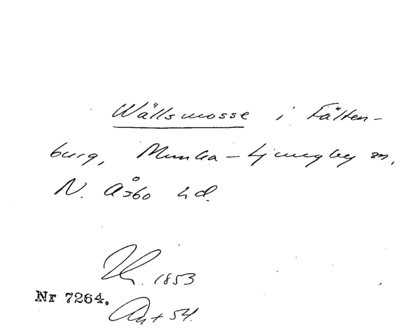 Wällsmosse i Fälten-
burg, Munka-Ljungby sn,
N. Åsbo hd.
1853
Nr 7264.
Akt 54.